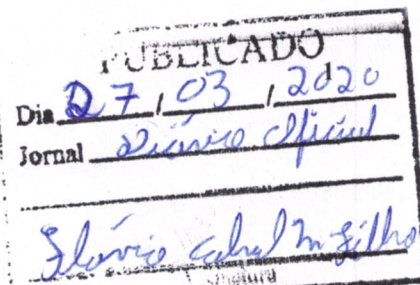 PUBLICADO
Dia 27 / 03 / 2020
Jornal Diário Oficial
Flávio Cabral M. Filho
Assinatura